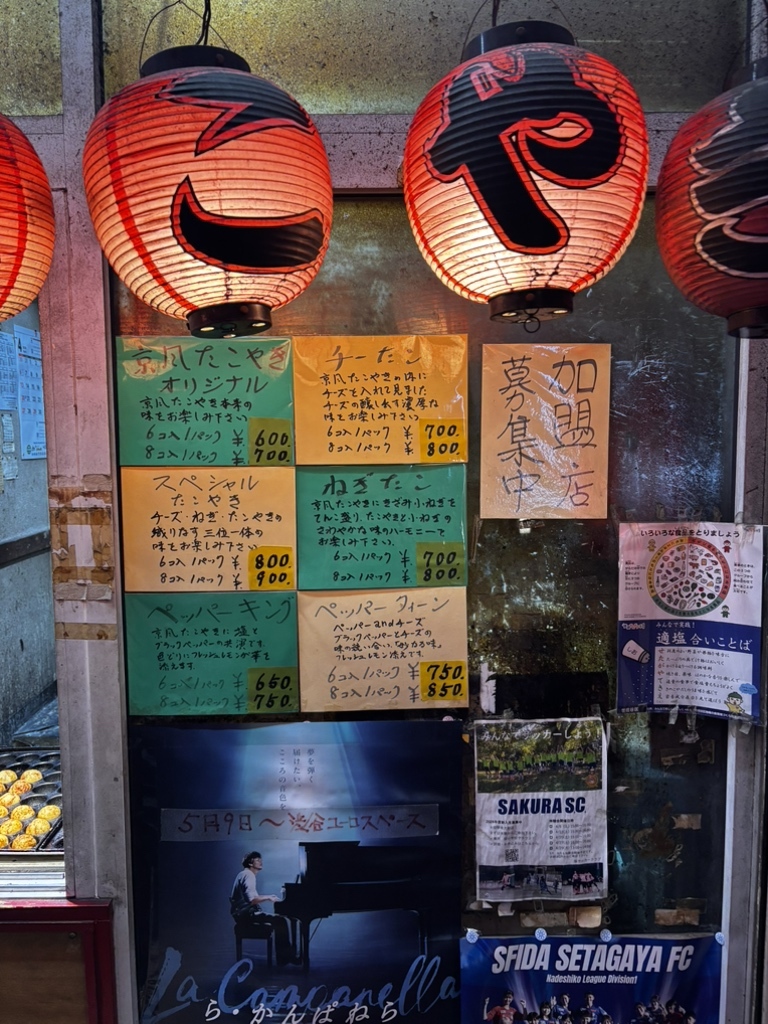 こ
や
京風たこやき
オリジナル
京風たこやき本来の
味をお楽しみ下さい
6コ入1パック ¥600.
8コ入1パック ¥700.
チーたこ
京風たこやきの中に
チーズを入れて見ました
チーズの醸し出す濃厚な
味をお楽しみ下さい。
6コ入1パック ¥700.
8コ入1パック ¥800.
スペシャル
たこやき
チーズ・ねぎ・たこやきの
織りなす三位一体の
味をお楽しみ下さい
6コ入1パック ¥800.
8コ入1パック ¥900.
ねぎたこ
京風たこやきにきざみ小ねぎを
てんこ盛り。たこやきと小ねぎの
さわやかな味のハーモニーで
お楽しみ下さい。
6コ入1パック ¥700.
8コ入1パック ¥800.
ペッパーキング
京風たこやきに塩と
ブラックペッパーの
フレッシュレモンが
添えます
6コ入1パック ¥650.
8コ入1パック ¥750.
ペッパークィーン
ペッパーandチーズ
ブラックペッパーとチーズの
味の競い合い。
フレッシュレモン添えです。
6コ入1パック ¥750.
8コ入1パック ¥850.
加盟店
募集中
いろいろな食品をとりましょう
みんなで実践!
適塩 合いことば
夢を弾く
届けたい、
こころの音色を
5月9日〜渋谷ユーロスペース
La Campanella
ら・かんぱねら
みんなでサッカーしよう!
SAKURA SC
SFIDA SETAGAYA FC
Nadeshiko League Division1